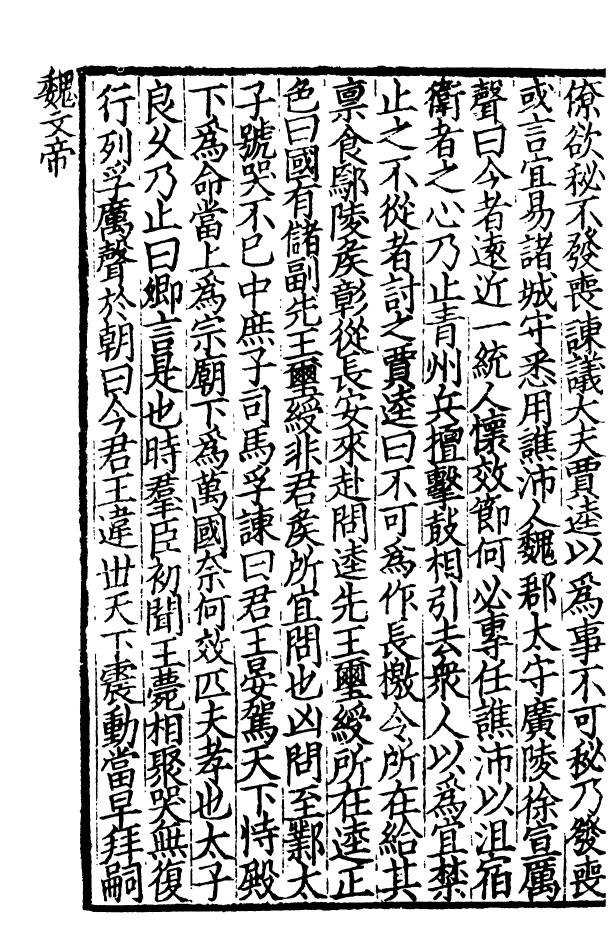 僚欲秘不發喪諫議大夫賈逵以爲事不可秘乃發喪
或言宜易諸城守悉用譙沛人魏郡太守廣陵徐宣厲
聲曰今者遠近一統人懷效節何必專任譙沛以沮宿
衛者之心乃止青州兵擅擊鼓相引去衆人以爲宜禁
止之不從者討之賈逵曰不可爲作長檄令所在給其
禀食鄢陵矦彰從長安來赴問逵先王璽綬所在逵正
色曰國有儲副先王璽綬非君矦所宜問也凶問至鄴太
子號哭不已中庶子司馬孚諫曰君王晏駕天下恃殿
下爲命當上爲宗廟下爲萬國柰何效匹夫孝也太子
良乆乃止曰卿言是也時羣臣初聞王薨相聚哭無復
行列孚厲聲於朝曰今君王違世天下震動當早拜嗣
魏文帝